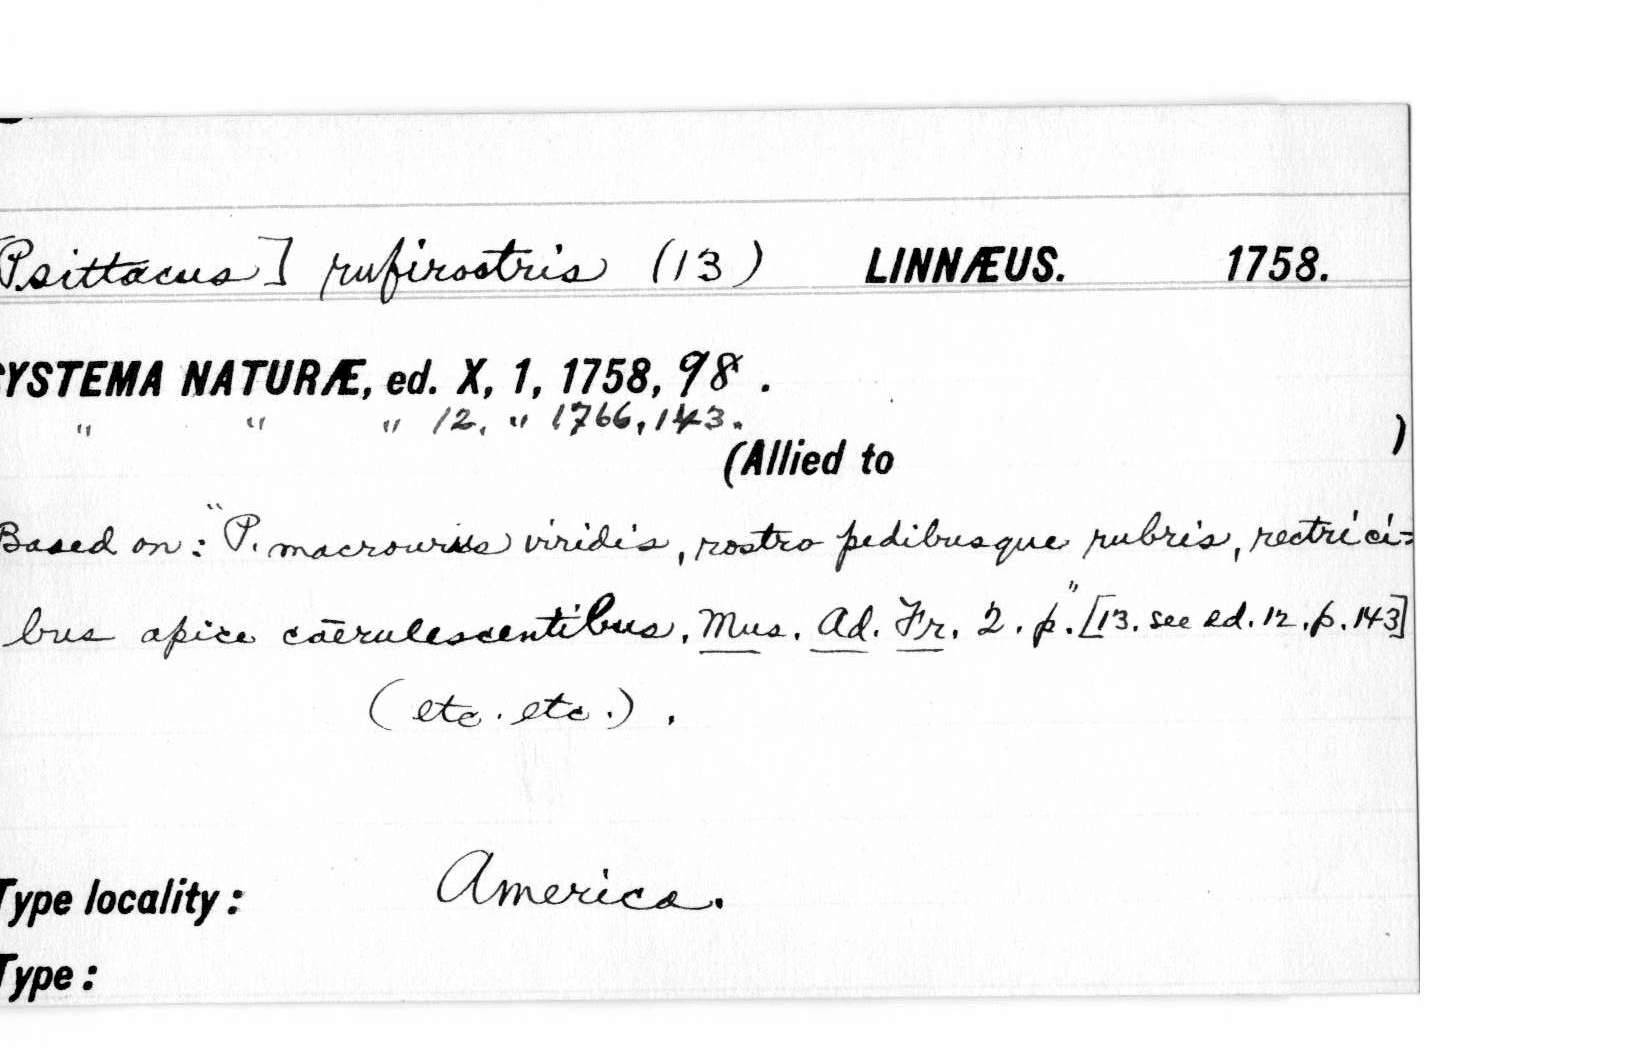 [Psittacus] rufirostris (13) LINNÆUS. 1758.
SYSTEMA NATURÆ, ed. X, 1, 1758, 98.
" " " 12, " 1766, 143.
(Allied to )
Based on: "P. macrourus viridis, rostro pedibusque rubris, rectrici=
bus apice caerulescentibus. Mus. Ad. Fr. 2. p." [13. see ed. 12. p. 143]
(etc. etc.).
Type locality: America.
Type: